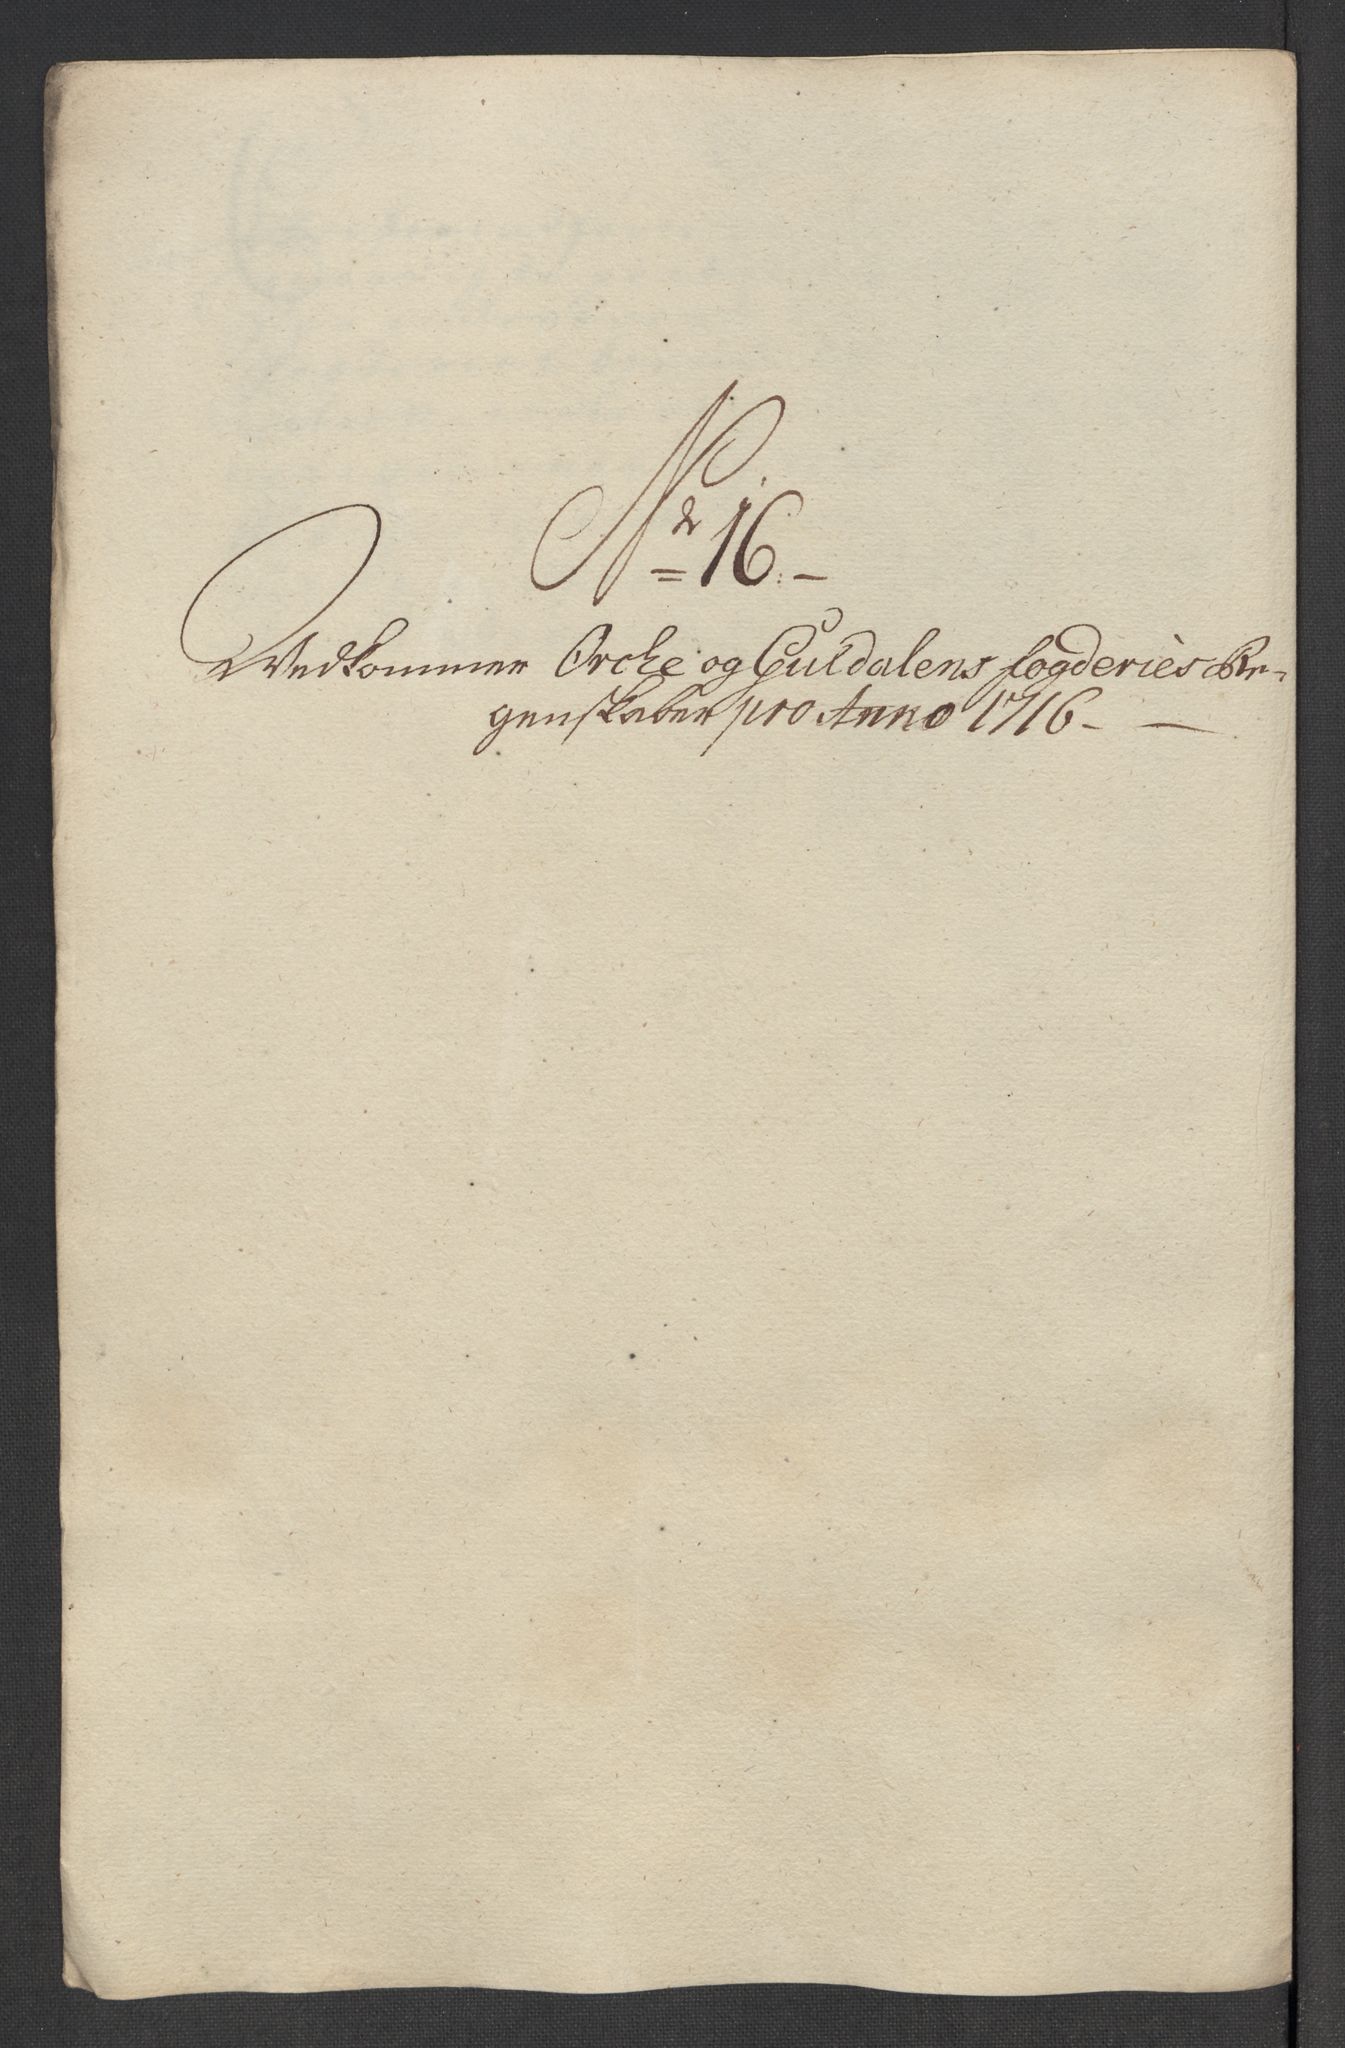 No 16.
Vedkommer Orche og Guldalens fogderies Re-
genskaber pro Anno 1716